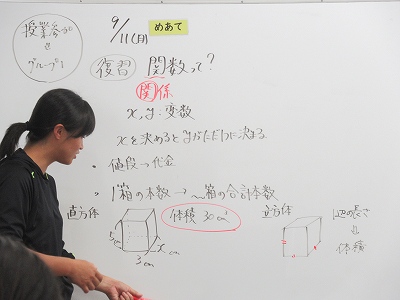 9/11(月)
めあて
授業
グループ!
復習 関数って?
関係
x, y 変数
xを決めるとyがただ1つに決まる
・値段→代金
・1箱の本数→〜箱の合計本数
直方体
体積 30cm³
x cm
3cm
立方体
1辺の長さ
↓
体積